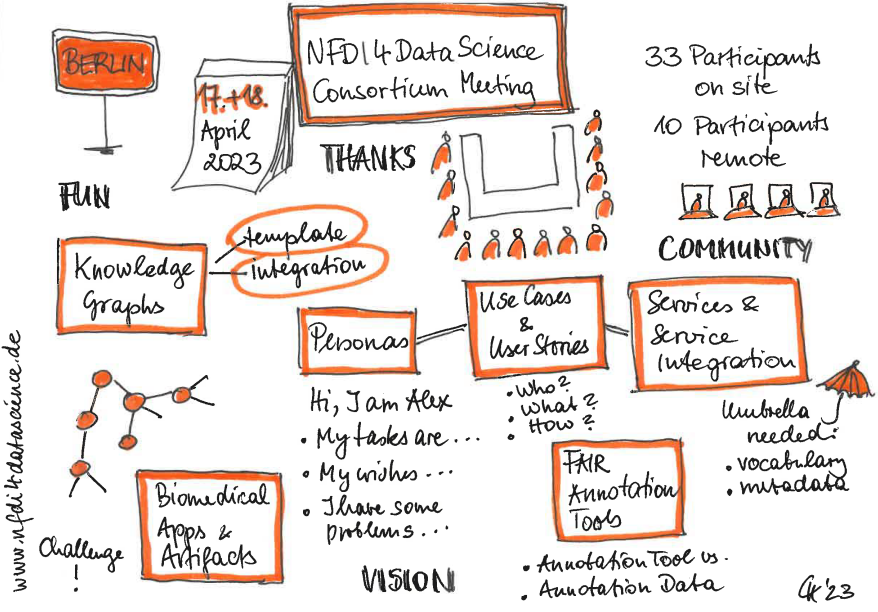 BERLIN
17.+18.
April
2023
NFDI4DataScience
Consortium Meeting
33 Participants
on site
10 Participants
remote
THANKS
FUN
COMMUNITY
Knowledge
Graphs
template
integration
Personas
Use Cases
&
User Stories
Services &
Service
Integration
Hi, I am Alex
• My tasks are ...
• My wishes ...
• I have some
problems ...
• Who?
• What?
• How?
Umbrella
needed:
• vocabulary
• metadata
FAIR
Annotation
Tools
• Annotation Tool vs.
• Annotation Data
Biomedical
Apps &
Artifacts
Challenge
!
VISION
www.nfdi4datascience.de
'23